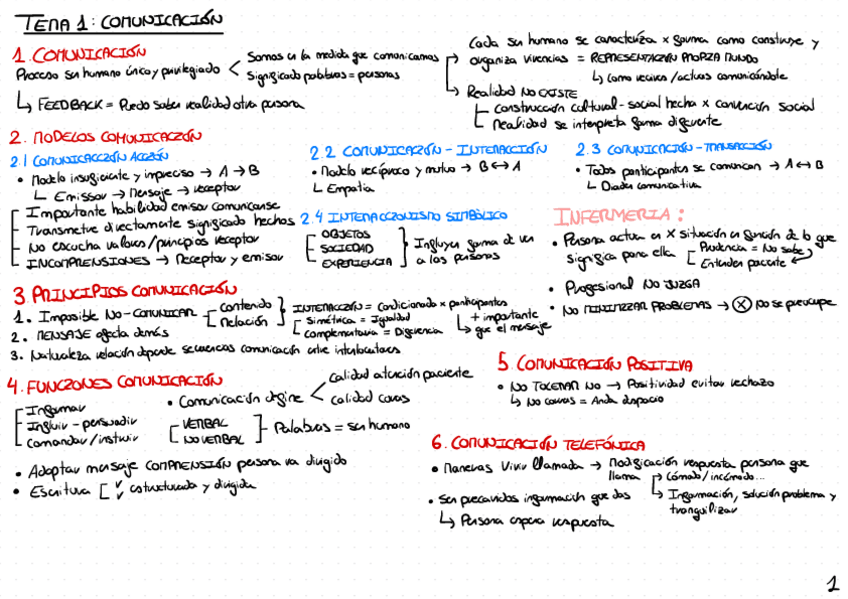 TEMA 1: COMUNICACIÓN
1. COMUNICACIÓN
Proceso ser humano único y privilegiado
Somos en la medida que comunicamos
Significado palabras = personas
Cada ser humano se caracteriza x forma como construye y
organiza vivencias = REPRESENTACIÓN PROPIA MUNDO
↳ como recives/actuas comunicándote
Realidad NO EXISTE
Construcción cultural-social hecha x convención social
Realidad se interpreta forma diferente
↳ FEEDBACK = Puedo saber realidad otra persona
2. MODELOS COMUNICACIÓN
2.1 COMUNICACIÓN ACCIÓN
• Modelo insuficiente y impreciso → A → B
↳ Emissor → Mensaje → receptor
Importante habilidad emisor comunicarse
Transmetre directamente significado hechos
No escucha valores/principios receptor
INCOMPRENSIONES → Receptor y emisor
2.2 COMUNICACIÓN - INTERACCIÓN
• Modelo recíproco y mutuo → B ↔ A
↳ Empatia
2.3 COMUNICACIÓN - TRANSACCIÓN
• Todos participantes se comunican → A ↔ B
↳ Diadas comunicativa
2.4 INTERACCIONISMO SIMBÓLICO
OBJETOS
SOCIEDAD
EXPERIENCIA
Influyen forma de ver
a las personas
INFERMERIA:
• Persona actua en x situación en función de lo que
significa para ella
Prudencia = No sabe
Entender paciente
• Profesional NO JUZGA
• NO MINIMIZAR PROBLEMAS → ⓧ No se preocupe
3. PRINCIPIOS COMUNICACIÓN
1. Imposible NO-COMUNICAR
Contenido
Relación
INTERACCIÓN = Condicionado x participantes
Simétrica = Igualdad
Complementaria = Diferencia
+ importante
que el mensaje
2. MENSAJE afecta demás
3. Naturaleza relación depende secuencias comunicación entre interlocutores
4. FUNCIONES COMUNICACIÓN
Informar
Influir - persuadir
Comandar/instruir
• Comunicación define
calidad atención paciente
calidad curas
VERBAL
NO VERBAL
Palabras = ser humano
• Adaptar mensaje COMPRENSIÓN persona va dirigido
• Escritura
✓ estructurada y dirigida
5. COMUNICACIÓN POSITIVA
• NO TOCERAR NO → Positividad evitar rechazo
↳ No corras = Anda despacio
6. COMUNICACIÓN TELEFÓNICA
• Maneras Vivir llamada → Modificación respuesta persona que
llama
Cómodo/incómodo...
Información, solución problema y
tranquilizar
• Ser precavidos información que das
↳ Persona espera respuesta
1